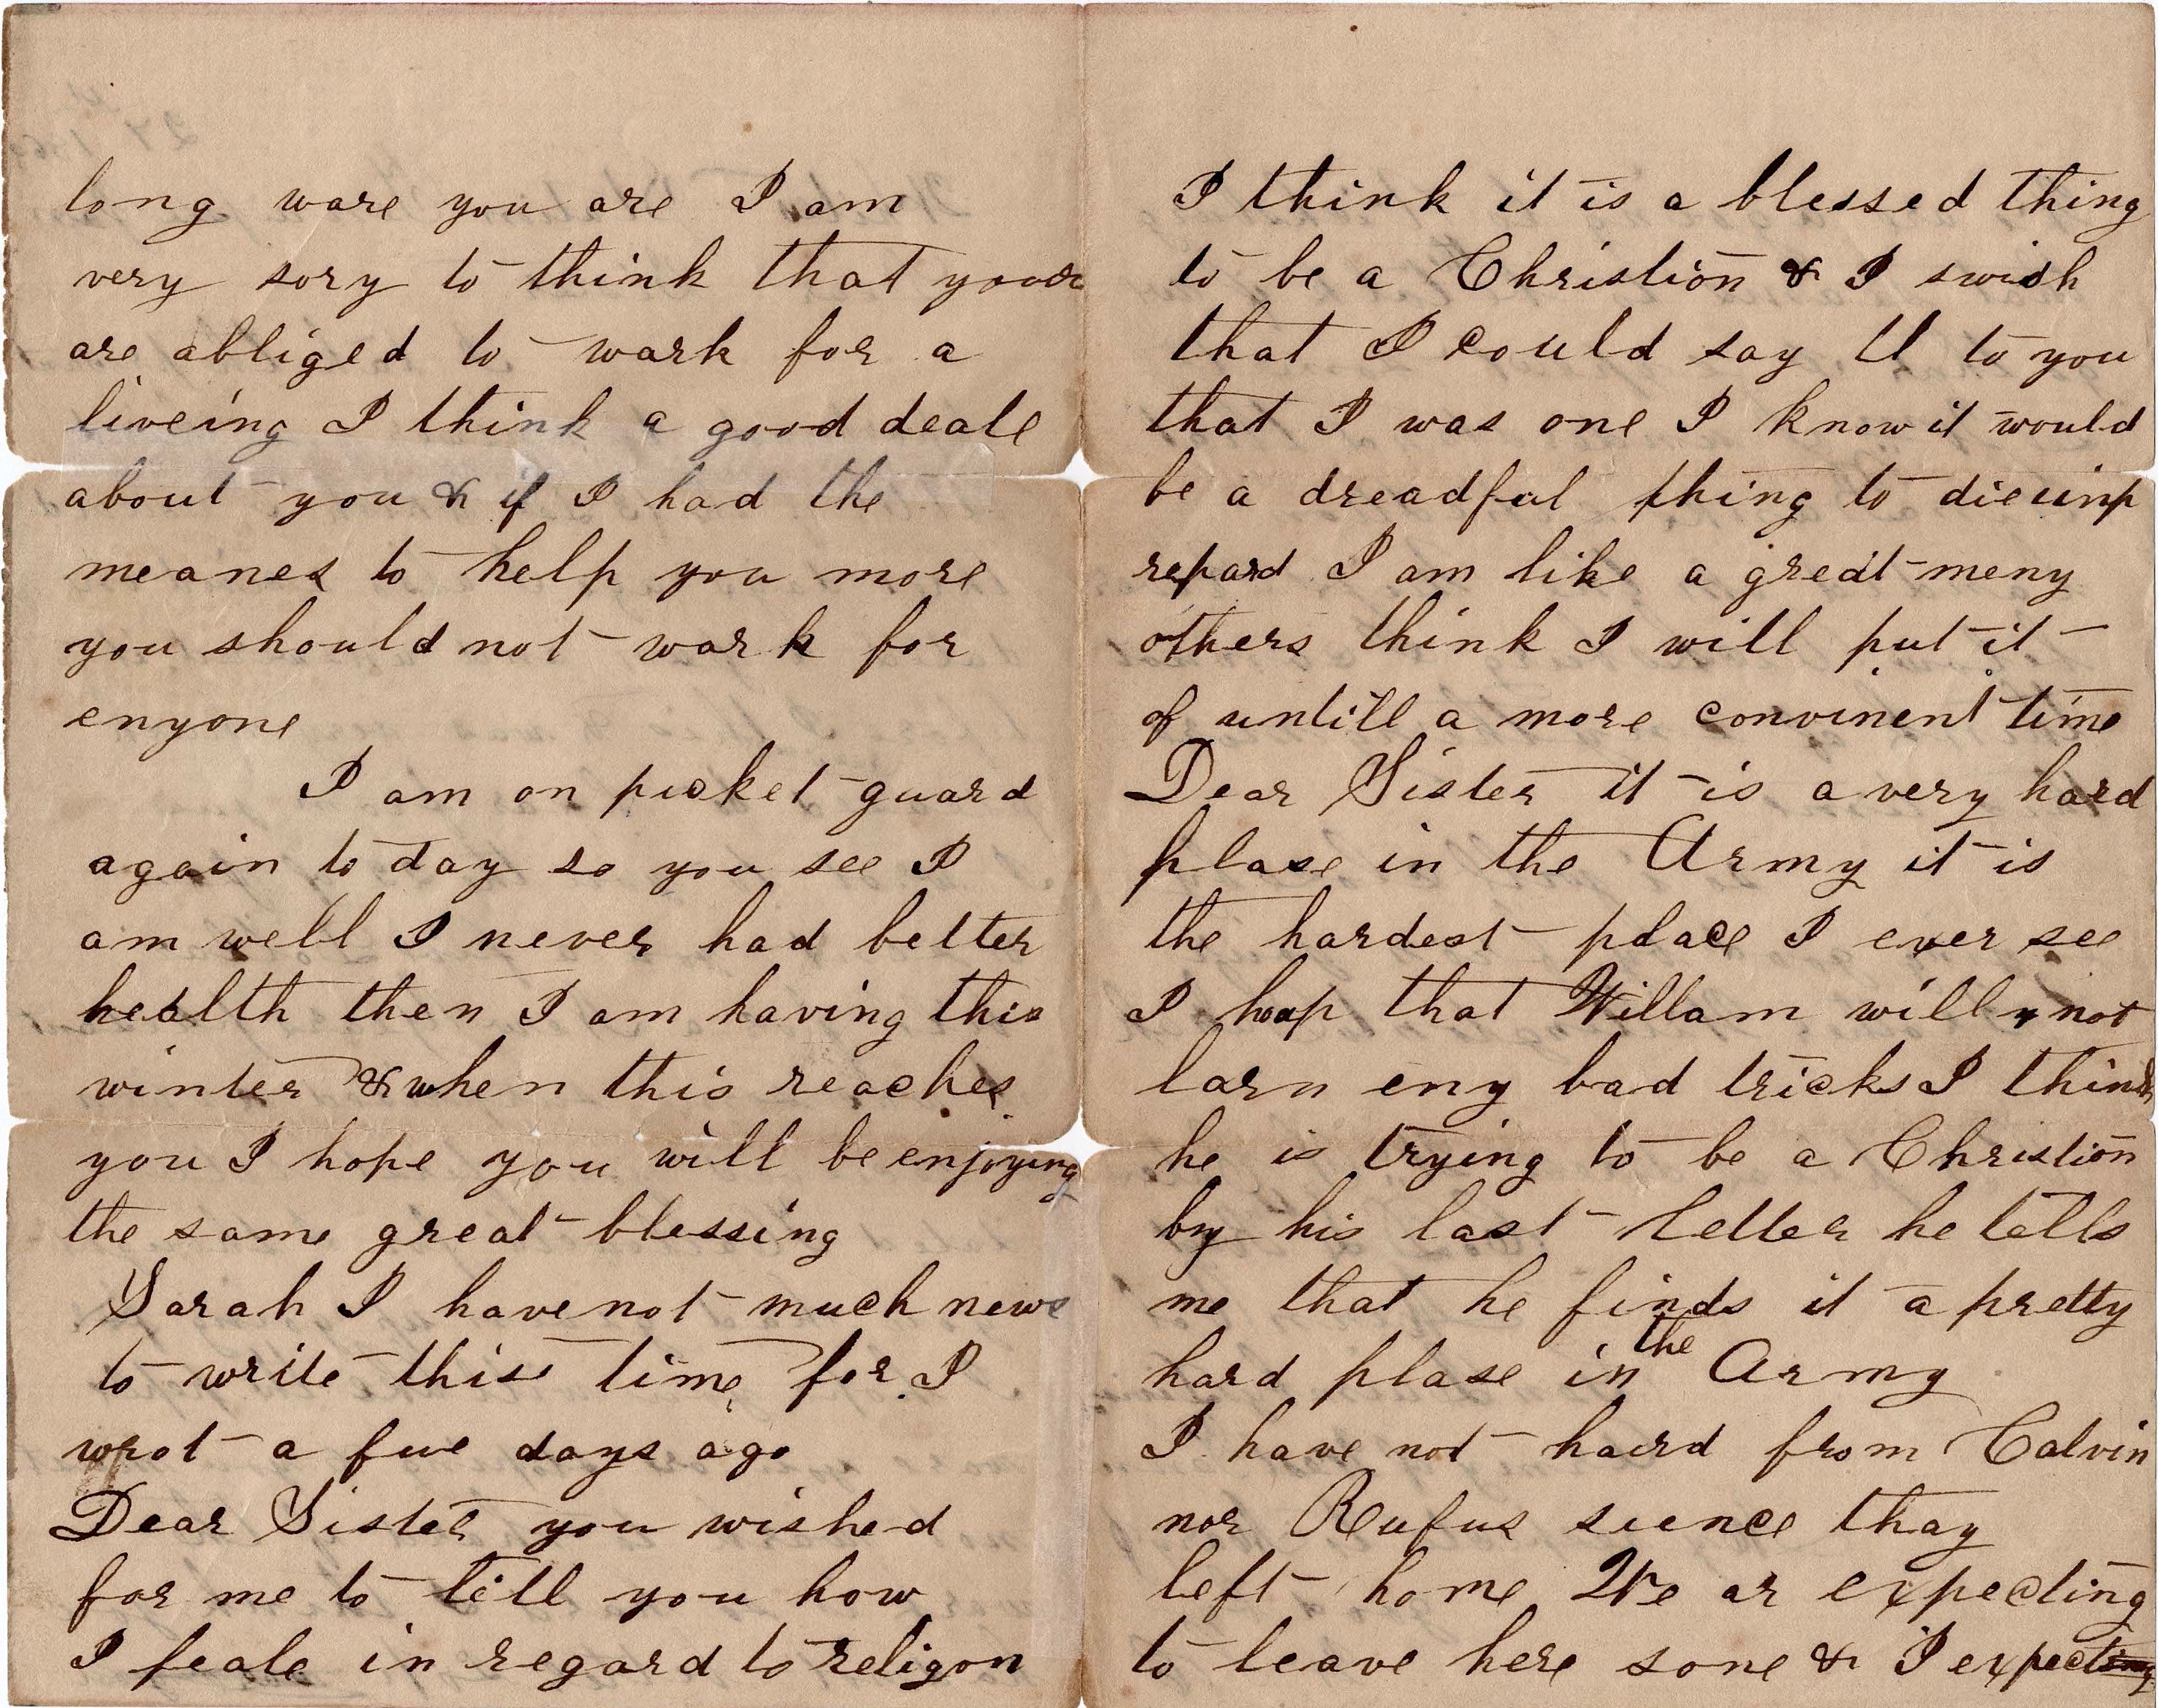 long ware you are I am
very sory to think that you
are abliged to wark for a
liveing I think a good deale
about you & if I had the
meanes to help you more
you should not wark for
enyone
I am on picket guard
again to day so you see I
am well I never had better
health then I am having this
winter & when this reaches
you I hope you will be enjoying
the same great blessing
Sarah I have not much news
to write this time for I
wrot a fue days ago
Dear Sister you wished
for me to tell you how
I feale in regard to religon
I think it is a blessed thing
to be a Christion & I swish
that I could say it to you
that I was one I know it would
be a dreadful thing to die unp
repard I am like a great meny
others think I will put it
of untill a more convinent time
Dear Sister it is a very hard
plase in the Army it is
the hardest place I ever see
I hoap that Willam will not
larn eny bad tricks I think
he is trying to be a Christion
by his last letter he tells
me that he finds it a pretty
hard plase in the Army
I have not haird from Calvin
nor Rufus sience thay
left home We ar expecting
to leave here sone & I expect